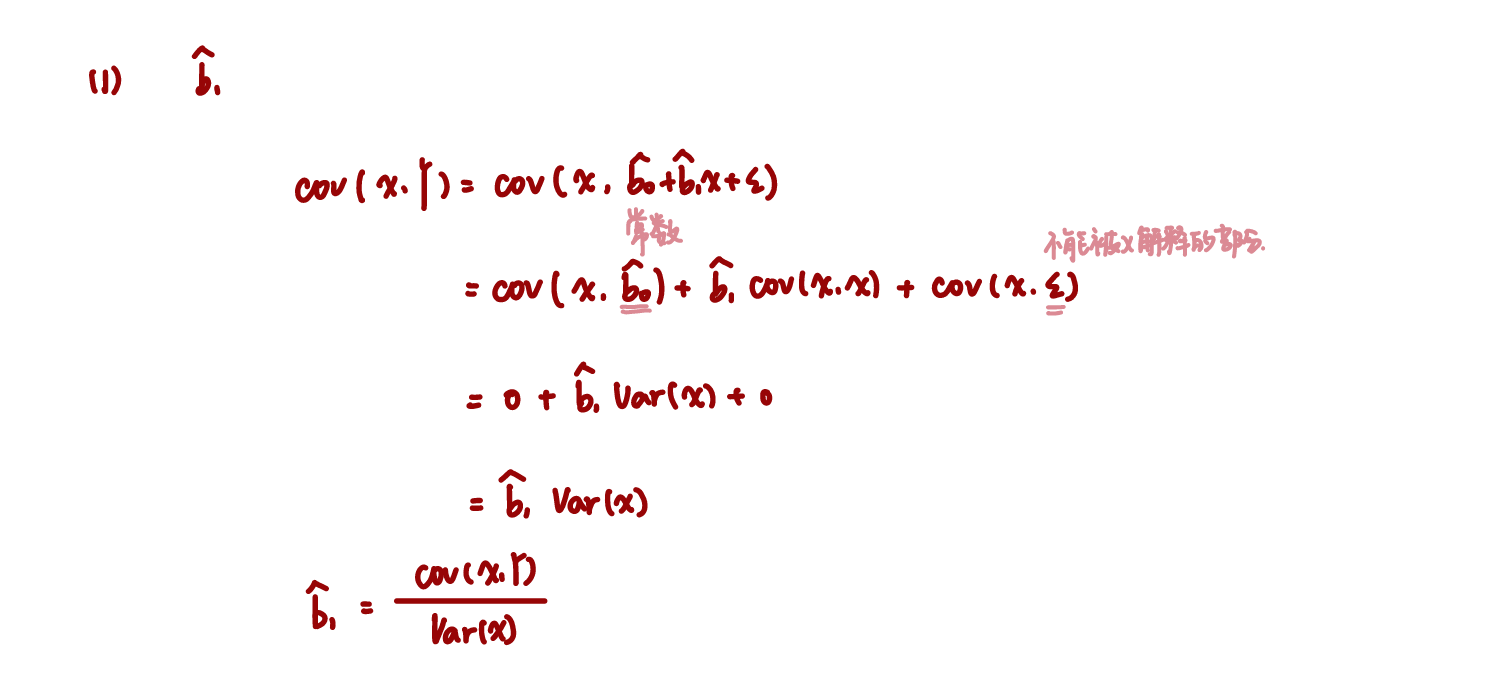 (1) b̂₁
cov(x.Y) = cov(x, b̂₀+b̂₁x+ε)
常数
不能被x解释的部分.
= cov(x. b̂₀) + b̂₁ cov(x.x) + cov(x.ε)
= 0 + b̂₁ Var(x) + 0
= b̂₁ Var(x)
b̂₁ = cov(x.Y) / Var(x)